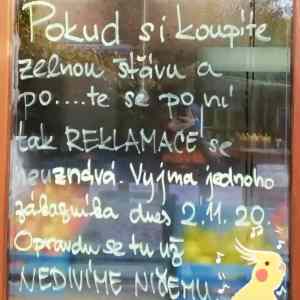 Pokud si koupíte
zelnou šťávu a
po....te se po ní
tak REKLAMACE se
neuznává. Vyjma jednoho
zákazníka dnes 2.11.20.
Opravdu se tu už
NEDIVÍME NIČEMU